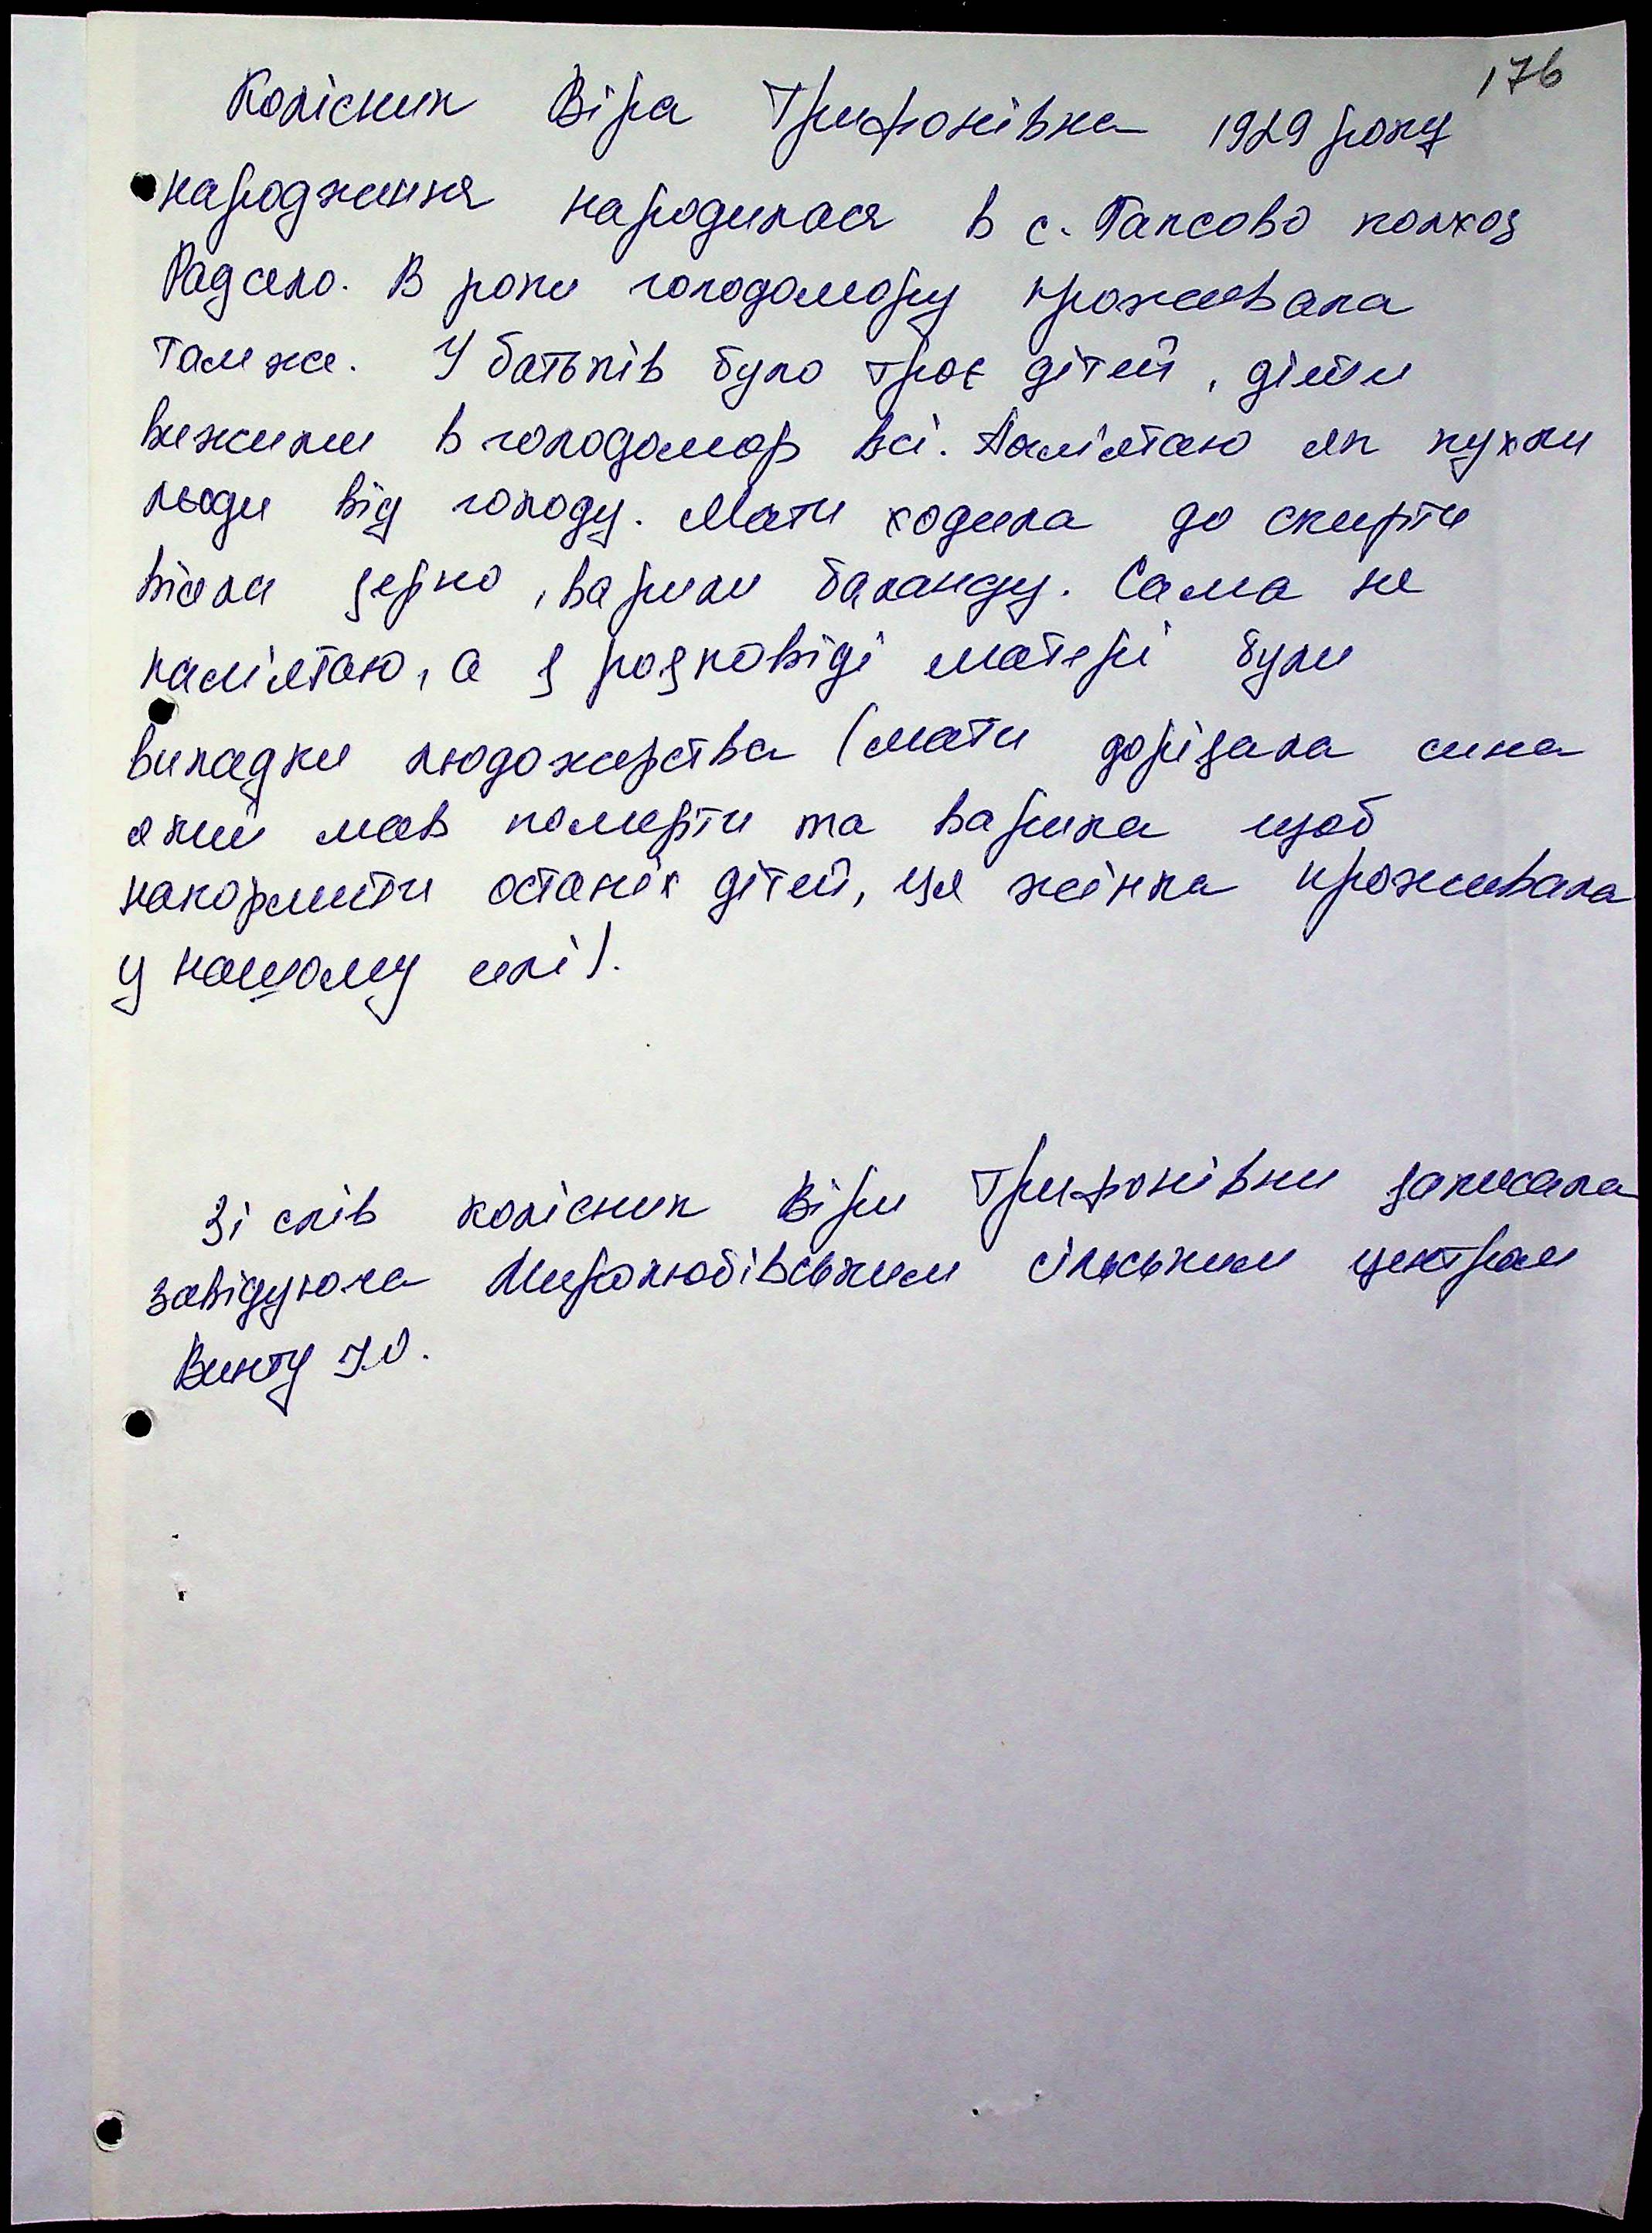 176
Колісник Віра Трифонівна 1929 року
народження народилася в с. Гапсово колхоз
Радсело. В роки голодомору проживала
там же. У батьків було троє дітей, діти
вижили в голодомор всі. Памʼятаю як пухли
люди від голоду. Мати ходила до скирти
віяла зерно, варили баланду. Сама не
памʼятаю, а з розповіді матері були
випадки людожерства (мати дорізала сина
який мав померти та варила щоб
накормити останіх дітей, ця жінка проживала
у нашому селі).
Зі слів Колісник Віри Трифонівни записала
завідуюча Миролюбівським сільським центром
Винту І.О.